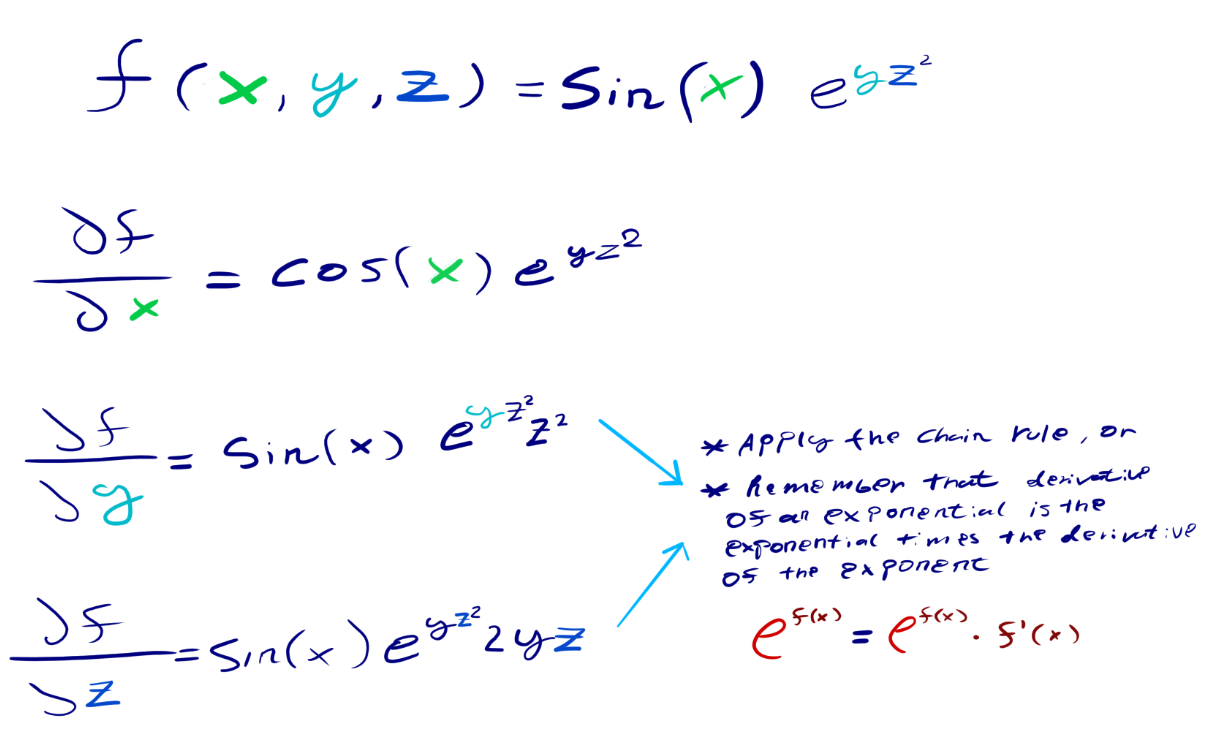 f(x, y, z) = Sin(x) e^{yz^2}
∂f/∂x = cos(x) e^{yz^2}
∂f/∂y = Sin(x) e^{yz^2} z^2
* Apply the chain rule, or
* Remember that derivative
of an exponential is the
exponential times the derivative
of the exponent
∂f/∂z = Sin(x) e^{yz^2} 2yz
e^{f(x)} = e^{f(x)} · f'(x)